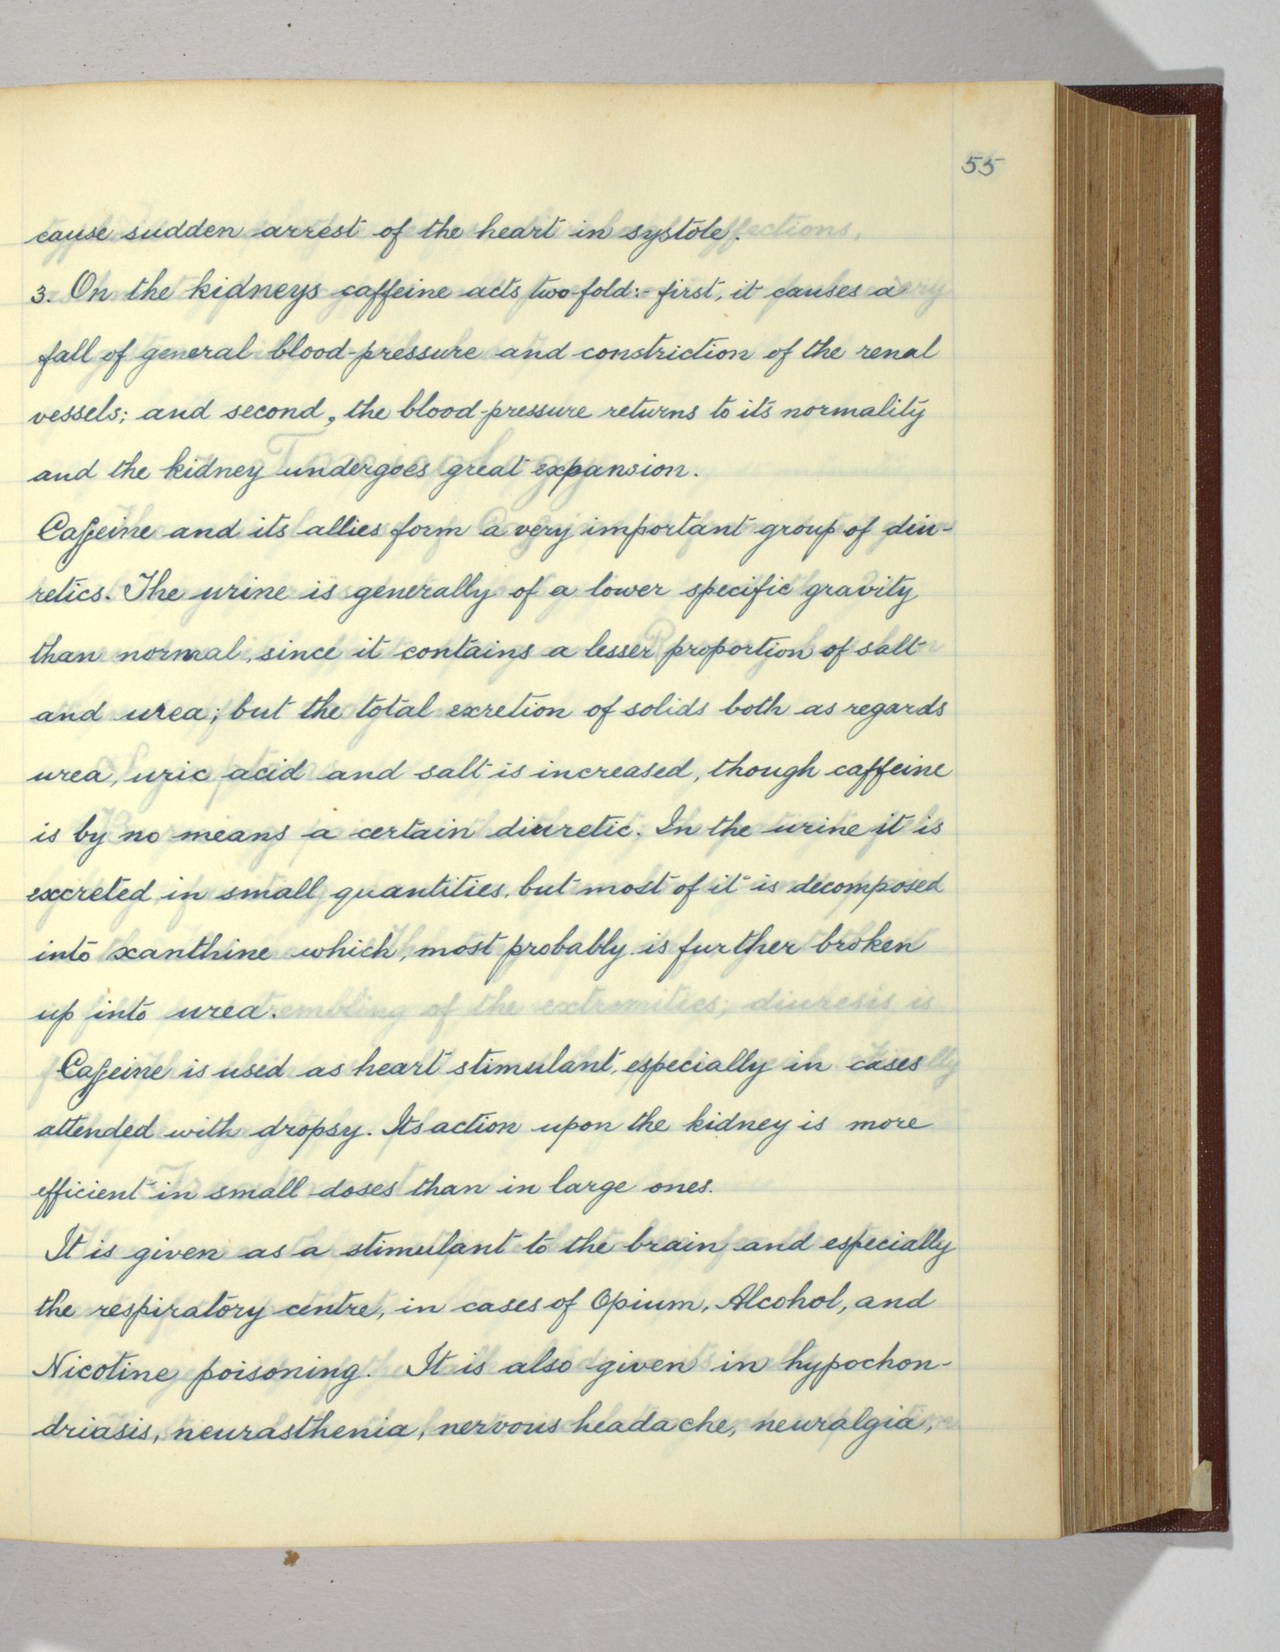 55
cause sudden arrest of the heart in systole.
3. On the kidneys caffeine acts two-fold:- first, it causes a
fall of general blood-pressure and constriction of the renal
vessels; and second, the blood-pressure returns to its normality
and the kidney undergoes great expansion.
Caffeine and its allies form a very important group of diu-
retics. The urine is generally of a lower specific gravity
than normal, since it contains a lesser proportion of salt
and urea; but the total excretion of solids both as regards
urea, uric acid and salt is increased, though caffeine
is by no means a certain diuretic. In the urine it is
excreted in small quantities, but most of it is decomposed
into xanthine which, most probably is further broken
up into urea.
Caffeine is used as heart stimulant, especially in cases
attended with dropsy. Its action upon the kidney is more
efficient in small doses than in large ones.
It is given as a stimulant to the brain and especially
the respiratory centre, in cases of Opium, Alcohol, and
Nicotine poisoning. It is also given in hypochon-
driasis, neurasthenia, nervous headache, neuralgia,